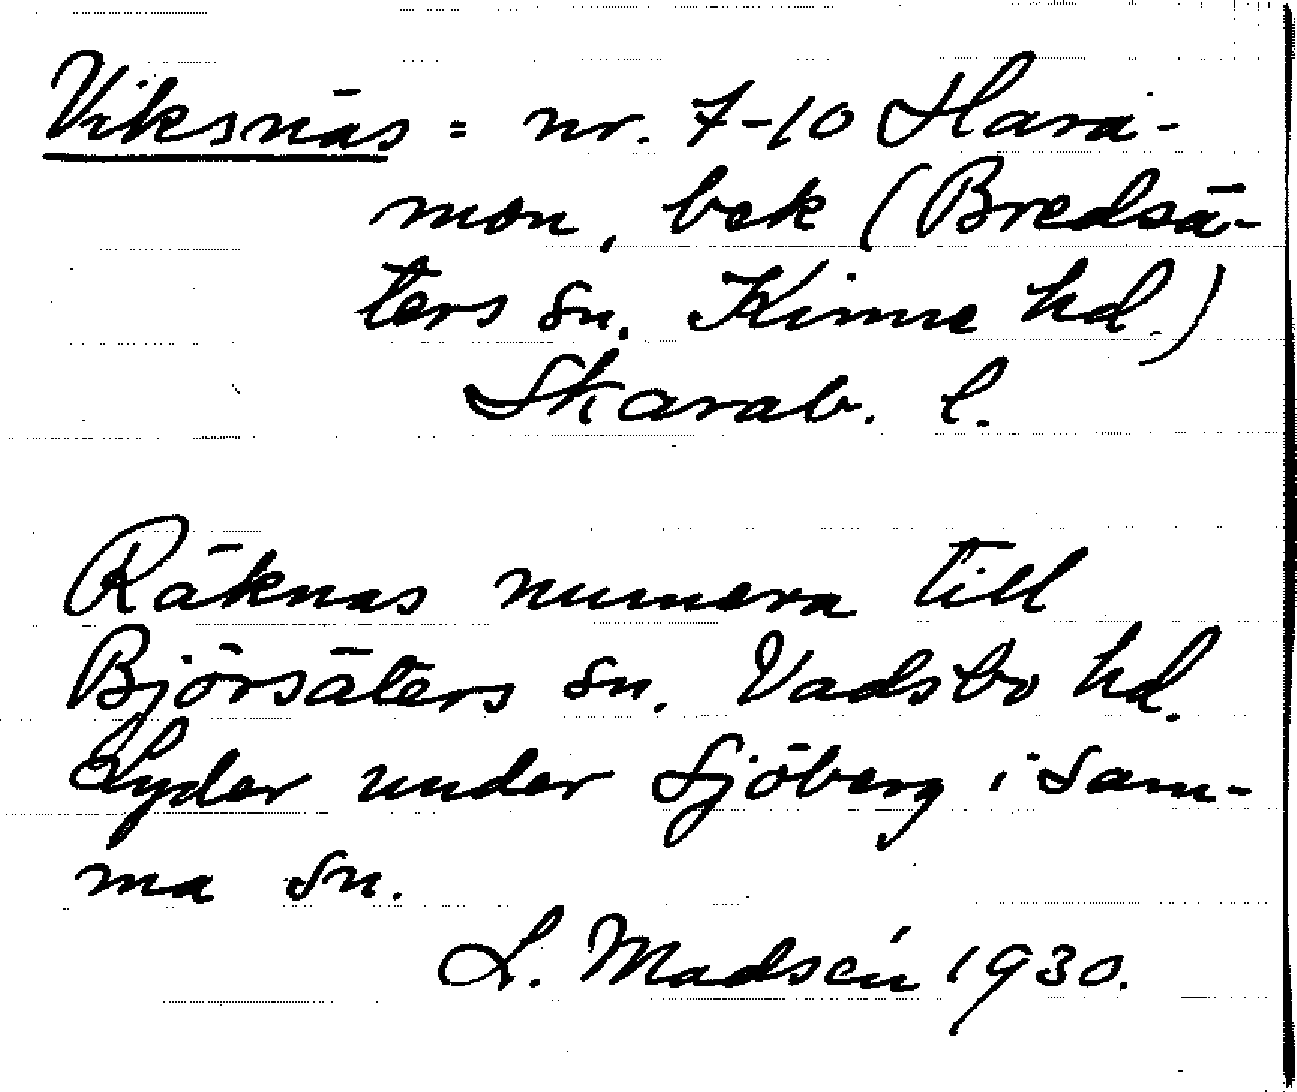 Viksnäs = nr. 7-10 Hara-
mon, bek (Bredsä-
ters sn. Kinne hd.)
Skarab. l.
Räknas numera till
Björsäters sn. Vadsbo hd.
Lyder under Sjöberg i sam-
ma sn.
L. Madsén 1930.